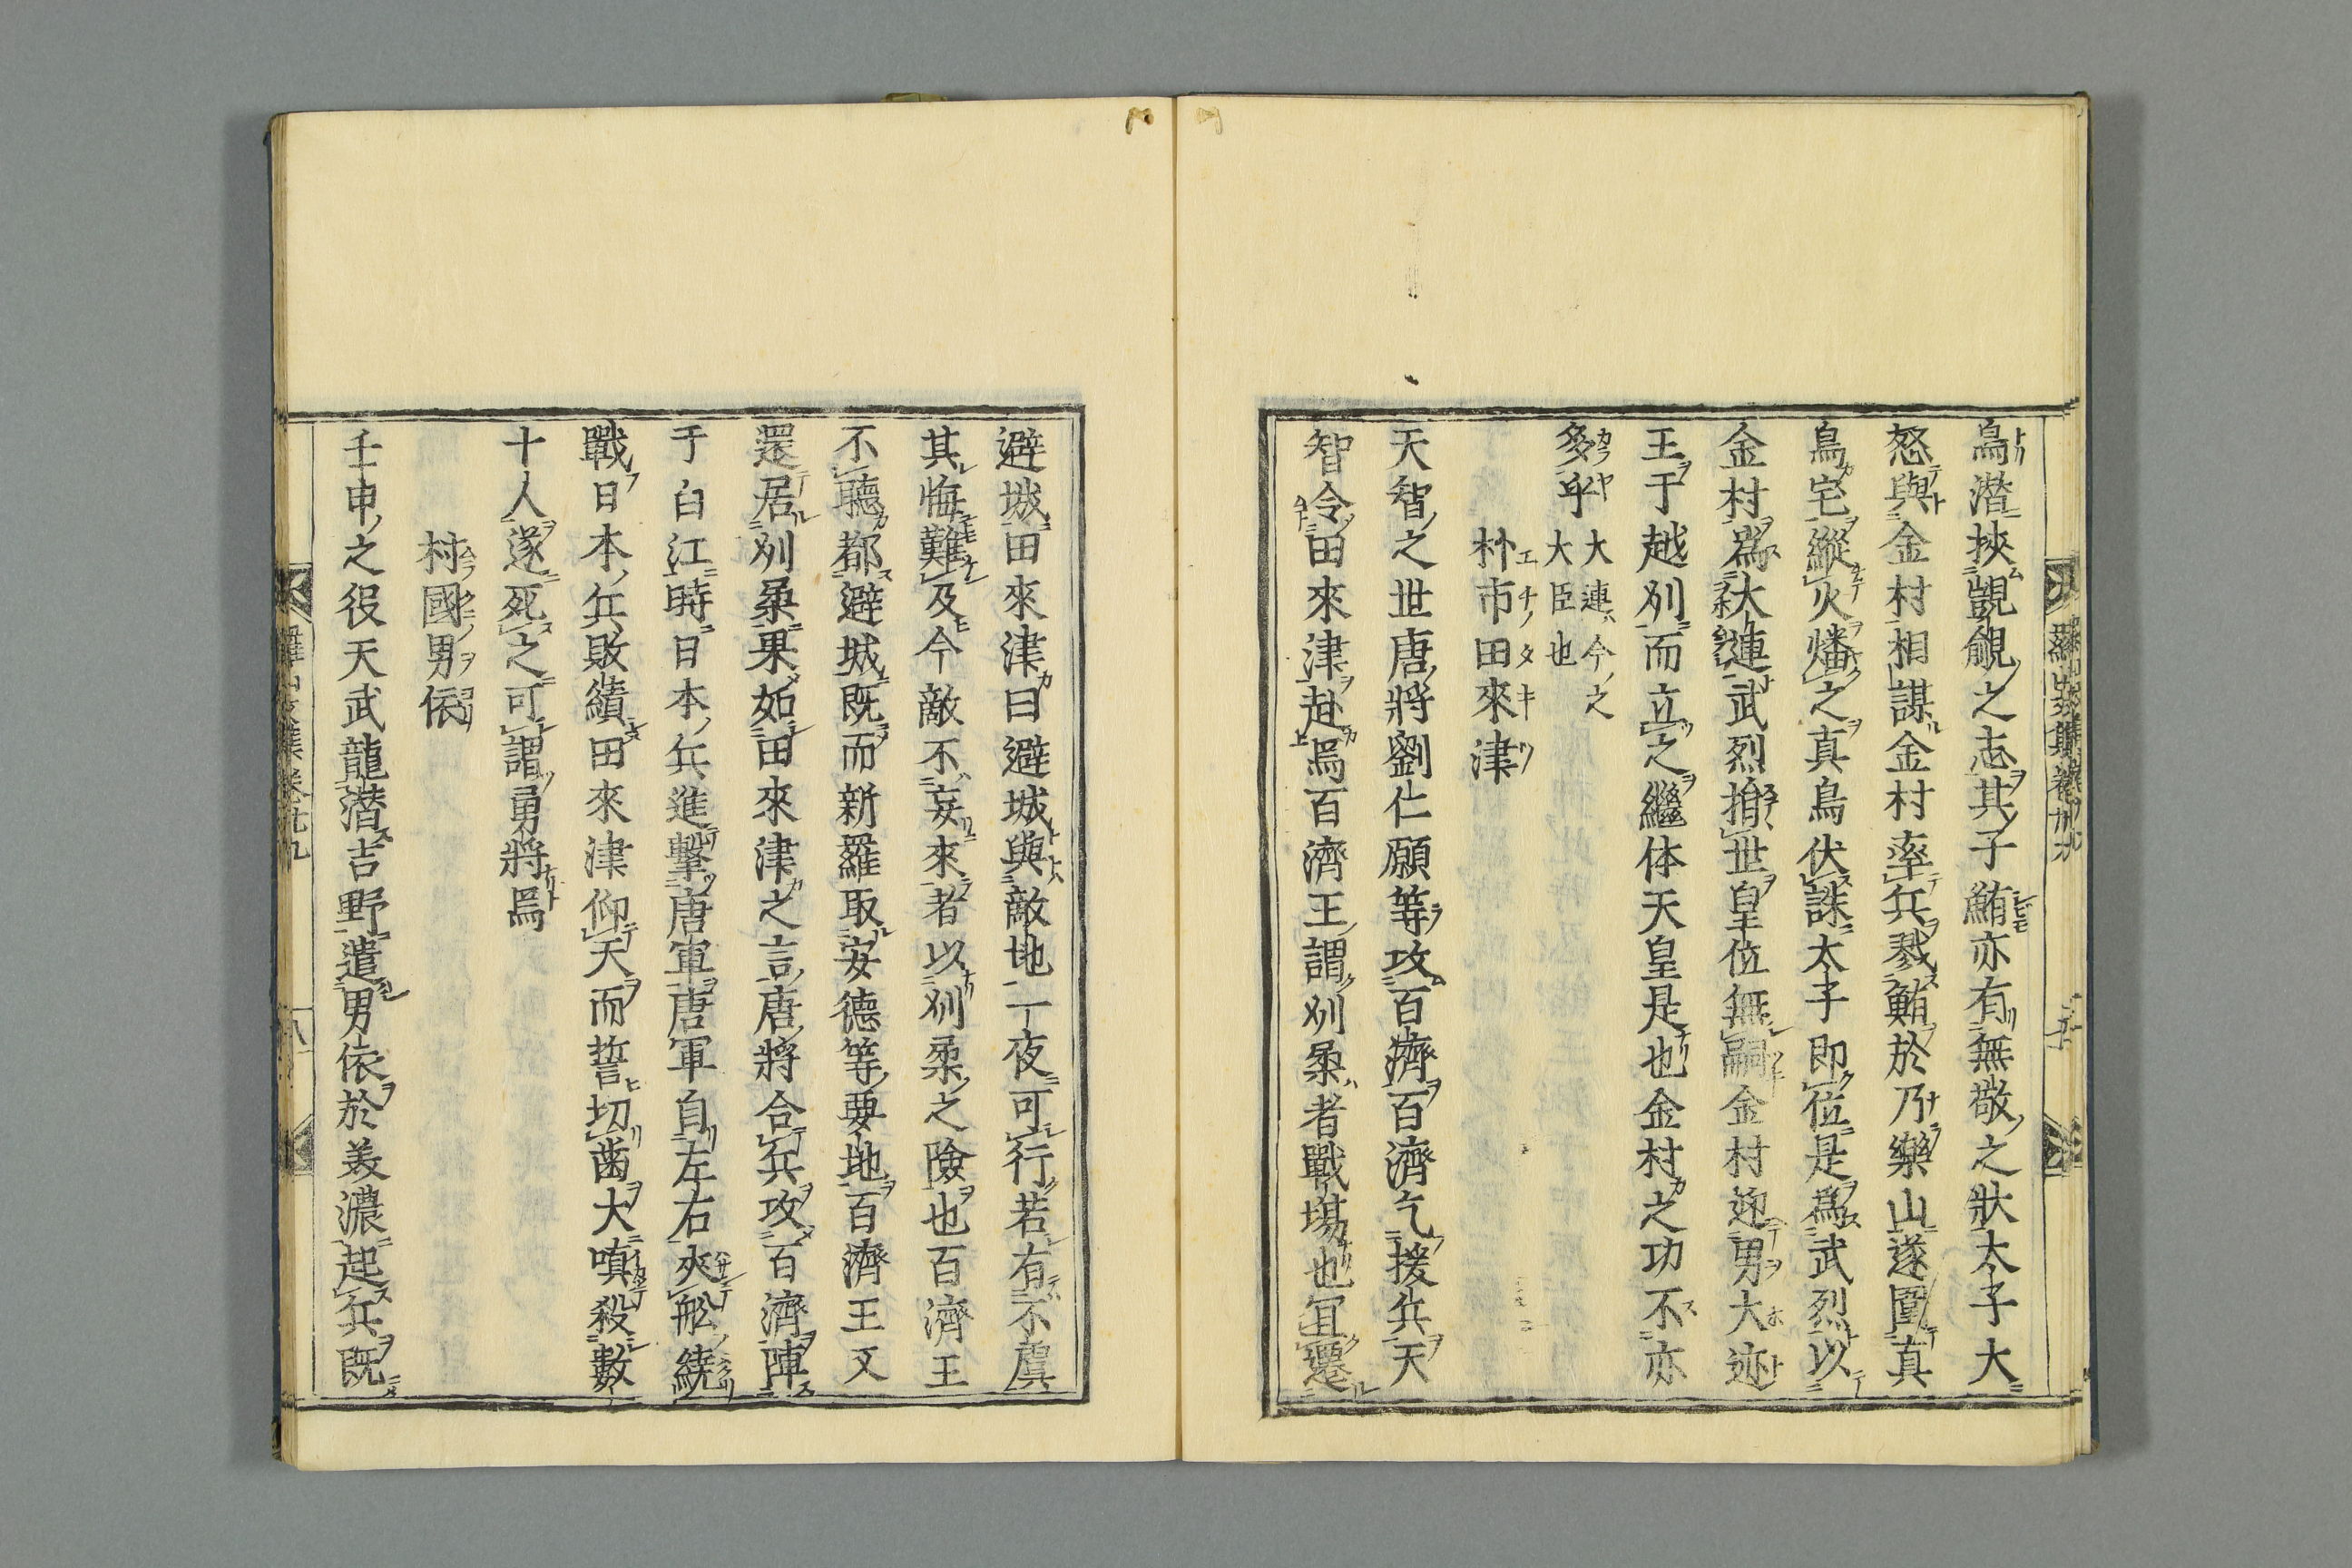 鳥潜挾覬覦之志其子鮪亦有無敬之狀太子大
怒與金村相謀金村率兵戮鮪於乃樂山遂圍真
鳥宅縱火燔之真鳥伏誅太子即位是爲武烈以
金村爲大連武烈捐世皇位無嗣金村迎男大迹
王于越刕而立之繼体天皇是也金村之功不亦
多乎
大連今之
大臣也
朴市田來津
天智之世唐將劉仁願等攻百濟百濟乞援兵天
智令田來津赴焉百濟王謂刕柔者戰場也宜遷
避城田來津曰避城與敵地一夜可行若有不虞
其悔難及今敵不妄來者以刕柔之險也百濟王
不聽都避城既而新羅取安德等要地百濟王又
還居刕柔果如田來津之言唐將合兵攻百濟陣
于白江時日本兵進擊唐軍唐軍自左右夾舩繞
戰日本兵敗績田來津仰天而誓切齒大嗔殺數
十人遂死之可謂勇將焉
村國男依
壬申之役天武龍潜吉野遣男依於美濃起兵既
羅山文集卷卅九
八